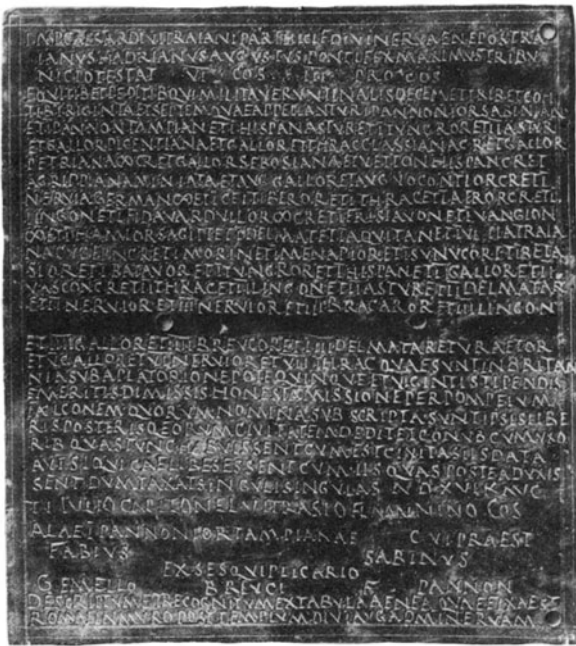 IMP CAESAR DIVI TRAIANI PARTHICI F DIVI NERVAE NEPOS TRA
IANVS HADRIANVS AVGVSTVS PONTIFEX MAXIMVS TRIBV
NIC POTESTAT VI COS III PROCOS
EQVITIB ET PEDITIB QVI MILITAVERVNT IN ALIS DECEM ET TRIB ET COH
TIB TRIGINTA ET SEPTEM QVAE APPELLANTVR I PANNONIOR SABINIAN
ET I PANNON TAMPIAN ET I HISPAN ASTVR ET I TVNGROR ET II ASTVR
ET GALLOR PICENTIANA ET GALLOR ET THRAC CLASSIANA C R ET GALLOR
PETRIANA ∞ C R ET GALLOR SEBOSIANA ET VETTON HISPAN C R ET
AGRIPPIANA MINIATA ET AVG GALLOR ET AVG VOCONTIOR C R ET I
NERVIA GERMAN ∞ ET I CELTIBEROR ET I THRAC ET I AFROR C R ET I
LINGON ET I FIDA VARDVLLOR ∞ C R ET I FRISIAVON ET I VANGION
∞ ET I HAMIOR SAGITT ET I DELMAT ET I AQVITAN ET I VLPIA TRAIA
NA CVGERN C R ET I MORIN ET I MENAPIOR ET I SVNVCOR ET I BETA
SIOR ET I BATAVOR ET I TVNGROR ET I HISPAN ET II GALLOR ET II
VASCON C R ET II THRAC ET II LINGON ET II ASTVR ET II DELMATAR
ET II NERVIOR ET III NERVIOR ET III BRACAROR ET III LINGON
ET IIII GALLOR ET IIII BREVCOR ET IIII DELMATAR ET V RAETOR
ET V GALLOR ET VI NERVIOR ET VII THRAC QVAE SVNT IN BRITAN
NIA SVB A PLATORIO NEPOTE QVINQVE ET VIGINTI STIPENDIS
EMERITIS DIMISSIS HONESTA MISSIONE PER POMPEIVM
FALCONEM QVORVM NOMINA SVBSCRIPTA SVNT IPSIS LIBE
RIS POSTERISQ EORVM CIVITATEM DEDIT ET CONVB CVM VXO
RIB QVAS TVNC HABVISSENT CVM EST CIVITAS IIS DATA
AVT SI QVI CAELIBES ESSENT CVM IIS QVAS POSTEA DVXIS
SENT DVMTAXAT SINGVLI SINGVLAS A D XVI K AVG
TI IVLIO CAPITONE L VITRASIO FLAMININO COS
ALAE I PANNONIOR TAMPIANAE CVI PRAEST
FABIVS SABINVS
EX SESQVIPLICARIO
GEMELLO BREVCI F PANNON
DESCRIPTVM ET RECOGNITVM EX TABVLA AENEA QVAE FIXA EST
ROMAE IN MVRO POST TEMPLVM DIVI AVG AD MINERVAM